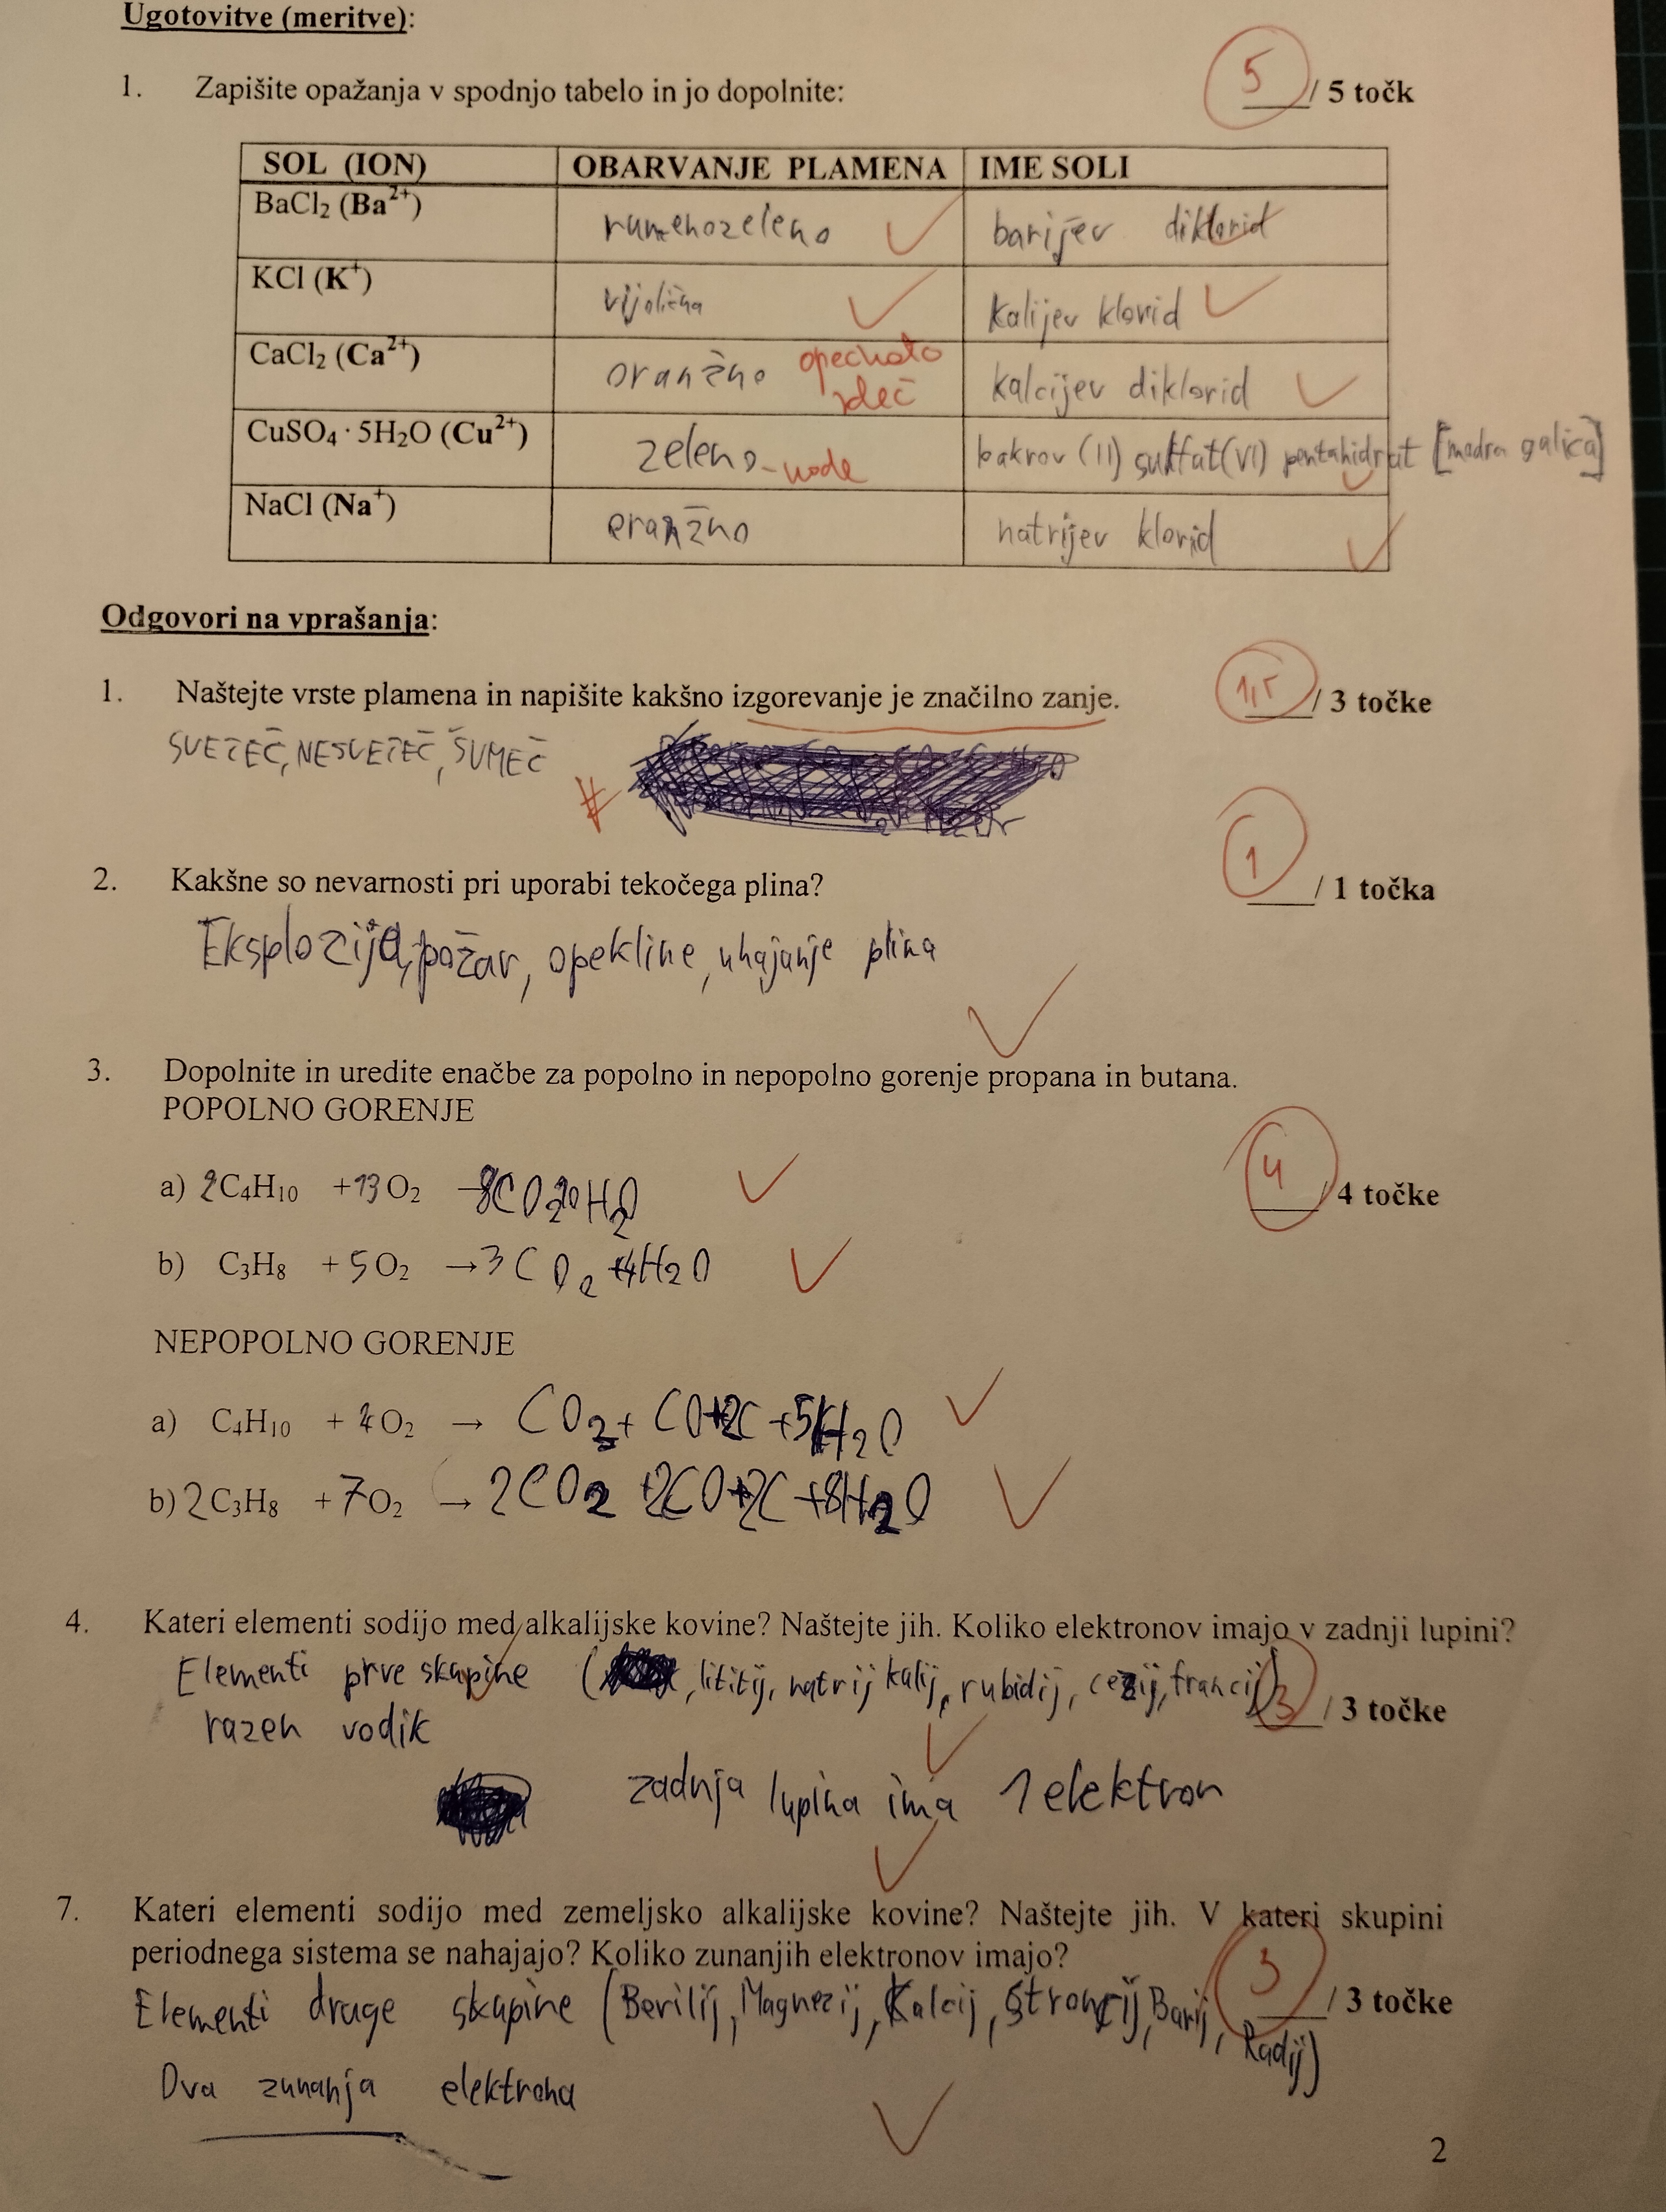 Ugotovitve (meritve):
1. Zapišite opažanja v spodnjo tabelo in jo dopolnite: 5 / 5 točk
SOL (ION) OBARVANJE PLAMENA IME SOLI
BaCl₂ (Ba²⁺) rumenozeleno barijev diklorid
KCl (K⁺) vijolična kalijev klorid
CaCl₂ (Ca²⁺) oranžno opečnato rdeč kalcijev diklorid
CuSO₄ · 5H₂O (Cu²⁺) zeleno - mode bakrov (II) sulfat(VI) pentahidrat [modra galica]
NaCl (Na⁺) oranžno natrijev klorid
Odgovori na vprašanja:
1. Naštejte vrste plamena in napišite kakšno izgorevanje je značilno zanje. 1,5 / 3 točke
SVETEČ, NESVETEČ, ŠUMEČ
2. Kakšne so nevarnosti pri uporabi tekočega plina? 1 / 1 točka
Eksplozija, požar, opekline, uhajanje plina
3. Dopolnite in uredite enačbe za popolno in nepopolno gorenje propana in butana.
POPOLNO GORENJE
a) 2C₄H₁₀ +13O₂ → 8CO₂ 10H₂O 4 / 4 točke
b) C₃H₈ + 5O₂ → 3CO₂ +4H₂O
NEPOPOLNO GORENJE
a) C₄H₁₀ + 4O₂ → CO₂ + CO+2C +5H₂O
b) 2C₃H₈ + 7O₂ → 2CO₂ +2CO+2C +8H₂O
4. Kateri elementi sodijo med alkalijske kovine? Naštejte jih. Koliko elektronov imajo v zadnji lupini?
Elementi prve skupine ( , lititij, natrij kalij, rubidij, cezij, francij) 3 / 3 točke
razen vodik
zadnja lupina ima 1 elektron
7. Kateri elementi sodijo med zemeljsko alkalijske kovine? Naštejte jih. V kateri skupini
periodnega sistema se nahajajo? Koliko zunanjih elektronov imajo?
Elementi druge skupine (Berilij, Magnezij, Kalcij, Stroncij, Barij, Radij) 3 / 3 točke
Dva zunanja elektrona
2